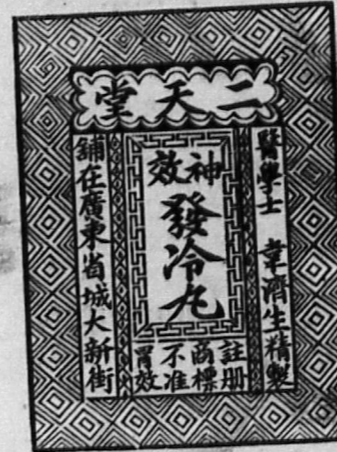 二天堂
醫學士 韋濟生精製
神效
發冷丸
註册商標不准冒效
舖在廣東省城大新街